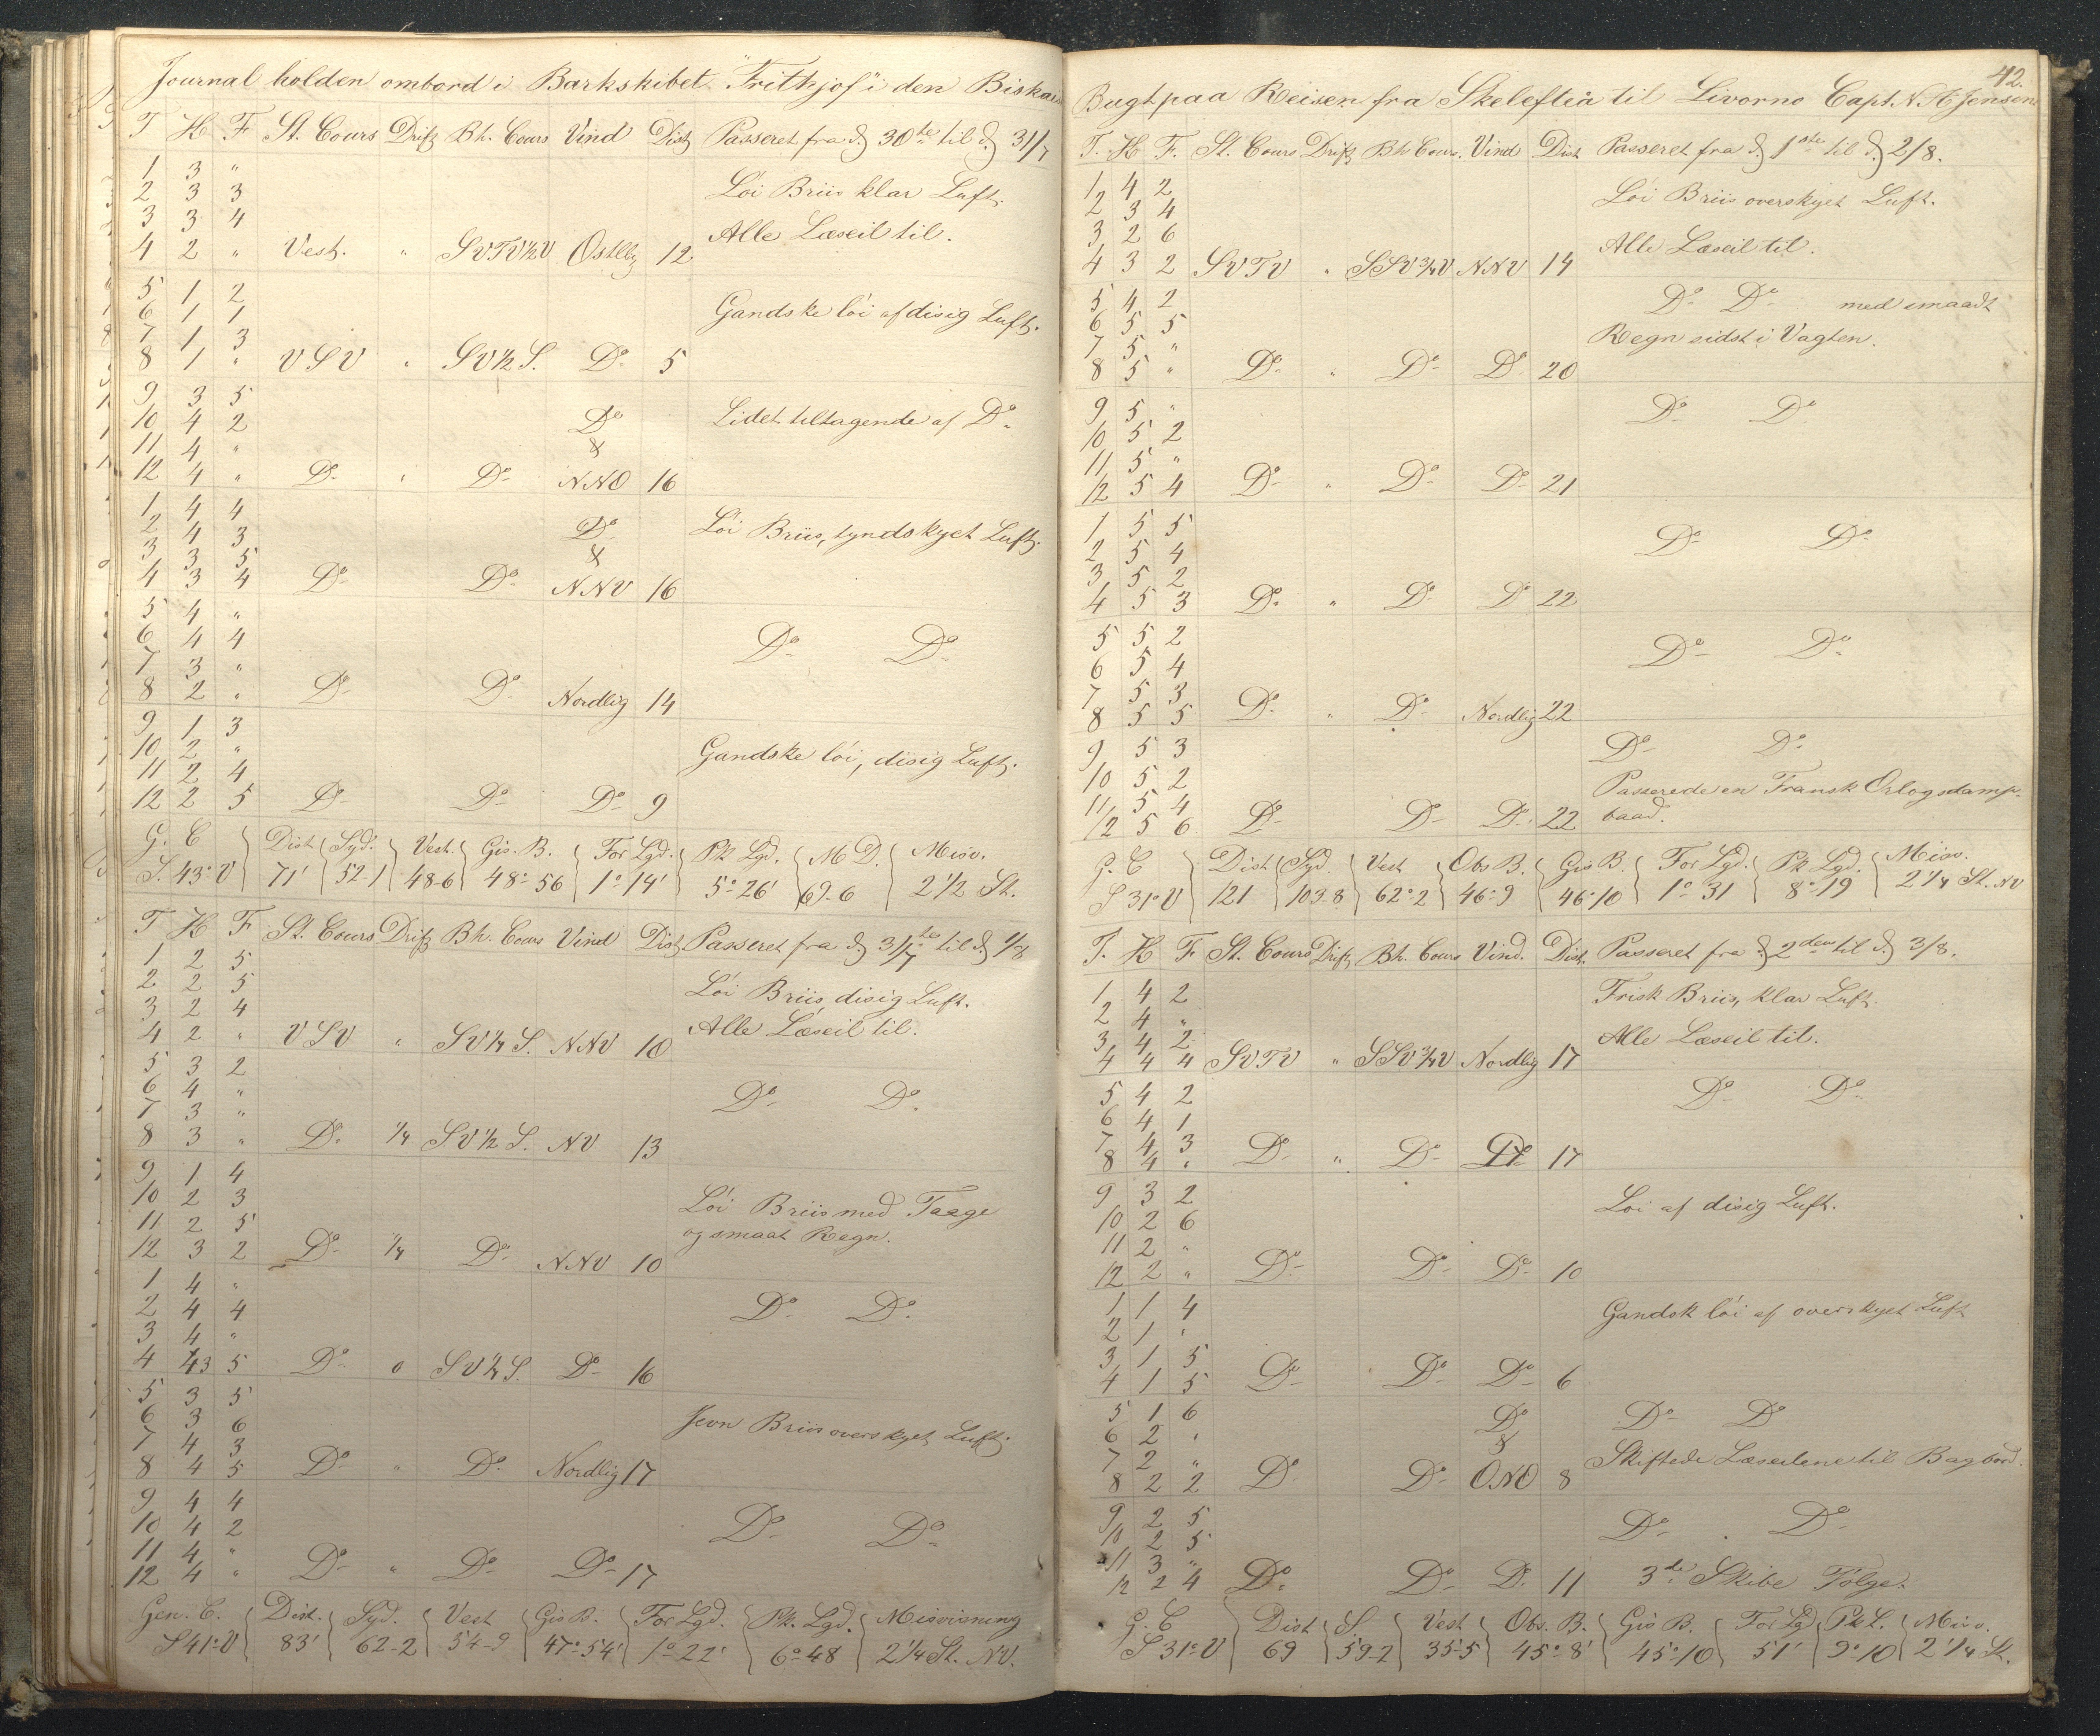 Journal holden ombord i Barkskibet "Frithjof" i den Biskai
T H F St. Cours Drift Bh. Cours Vind Dist Passeret fra d. 30te til d. 31/7
1 3 "
2 3 3 Löi Briis klar Luft.
3 3 4 Alle Læseil til.
4 2 " Vest. " SVTV1/2V Östllig 12
5 1 2
6 1 1 Gandske löi af disig Luft.
7 1 3
8 1 " VSV " SV1/2S. Do 5
9 3 5
10 4 2 Do Lidet tiltagende af Do
11 4 " &
12 4 " Do " Do NNO 16
1 4 4
2 4 3 Do Löi Briis, tyndskyet Luft.
3 3 5 &
4 3 4 Do Do NNV 16
5 4 "
6 4 4 Do Do
7 3 "
8 2 " Do Do Nordlig 14
9 1 3
10 2 " Gandske löi, disig Luft.
11 2 4
12 2 5 Do Do Do 9
G. C Dist Syd. Vest. Gis. B. For Lgd. Pk Lgd. M D. Misv.
S. 43° V 71' 52-1 48-6 48° 56 1°-14' 5°-26' 69-6 2 1/2 St.
T H F St. Cours Drift Bh. Cours Vind Dist Passeret fra d. 31/7te til d. 1/8
1 2 5
2 2 5 Löi Briis, disig Luft.
3 2 4 Alle Læseil til.
4 2 " VSV " SV1/4S. NNV 10
5 3 2
6 4 " Do Do
7 3 "
8 3 " Do 1/4 SV1/2S. NV 13
9 1 4
10 2 3 Löi Briis med Taage
11 2 5 og smaat Regn.
12 3 2 Do 1/4 Do NNV 10
1 4 "
2 4 4 Do Do
3 4 "
4 3 5 Do 0 SV1/4S. Do 16
5 3 5
6 3 6 Jevn Briis overskyet Luft.
7 4 3
8 4 5 Do " Do Nordlig 17
9 4 4
10 4 2 Do Do
11 4 "
12 4 " Do " Do Do 17
Gen. C. Dist. Syd. Vest Gis B. For Lgd. Pk. Lgd. Misvisning
S 41° V 83' 62-2 54-9 47°-54' 1°-22' 6°-48 2 1/4 St. NV.
42.
Bugt paa Reisen fra Skelefteå til Livorno Capt. N A Jensen
T. H F. St. Cours Drift Bh Cours. Vind Dist Passeret fra d. 1ste til d. 2/8.
1 4 2 Löi Briis overskyet Luft.
2 3 4
3 2 6 Alle Læseil til.
4 3 2 SVTV " SSV3/4V NNV 14
5 4 2 Do Do med smaadt
6 5 5 Regn sidst i Vagten.
7 5 "
8 5 " Do " Do Do 20
9 5 " Do Do
10 5 2
11 5 "
12 5 4 Do " Do Do 21
1 5 5
2 5 4 Do Do
3 5 2
4 5 3 Do " Do Do 22
5 5 2 Do Do
6 5 4
7 5 3
8 5 5 Do " Do Nordlig 22
9 5 3 Do Do
10 5 2 Passerede en Fransk Orlogsdamp-
11 5 4 baad.
12 5 6 Do Do Do 22
G. C Dist Syd. Vest Obs B. Gis B. For Lgd. Pk Lgd. Misv.
S 31° V 121 103-8 62-2 46°-9 46°-10 1°-31 8°-19 2 1/4 St. NV
T. H F St. Cours Drift Bh. Cours Vind. Dist. Passeret fra d. 2den til d. 3/8.
1 4 2 Frisk Briis, klar Luft.
2 4 "
3 4 2 Alle Læseil til.
4 4 4 SVTV " SSV3/4V Nordlig 17
5 4 2 Do Do
6 4 1
7 4 3
8 4 " Do " Do Do 17
9 3 2 Löi af disig Luft.
10 2 6
11 2 "
12 2 " Do Do Do 10
1 1 4 Gandsk löi af overskyet Luft
2 1 "
3 1 5
4 1 5 Do Do Do 6
5 1 6 Do Do Do
6 2 " &
7 2 " Skiftede Læseilene til Bagbord.
8 2 2 Do Do ONO 8
9 2 5 Do Do
10 2 5
11 3 "
12 2 4 Do Do Do 11 3de Skibe Fölge.
G. C Dist S. Vest Obs. B. Gis B. For Lgd Pk L. Misv.
S 31° V 69 59-2 35-5 45°-8' 45°-10 51' 9°-10 2 1/4 St.